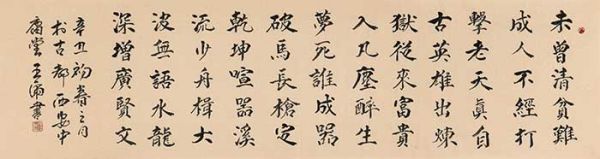 未曾清貧難
成人不經打
擊老天真自
古英雄出煉
獄從來富貴
入凡塵醉生
夢死誰成器
破馬長槍定
乾坤喧囂溪
流少舟楫大
波無語水龍
深增廣賢文
辛丑初春之月
於古都西安中
王 書